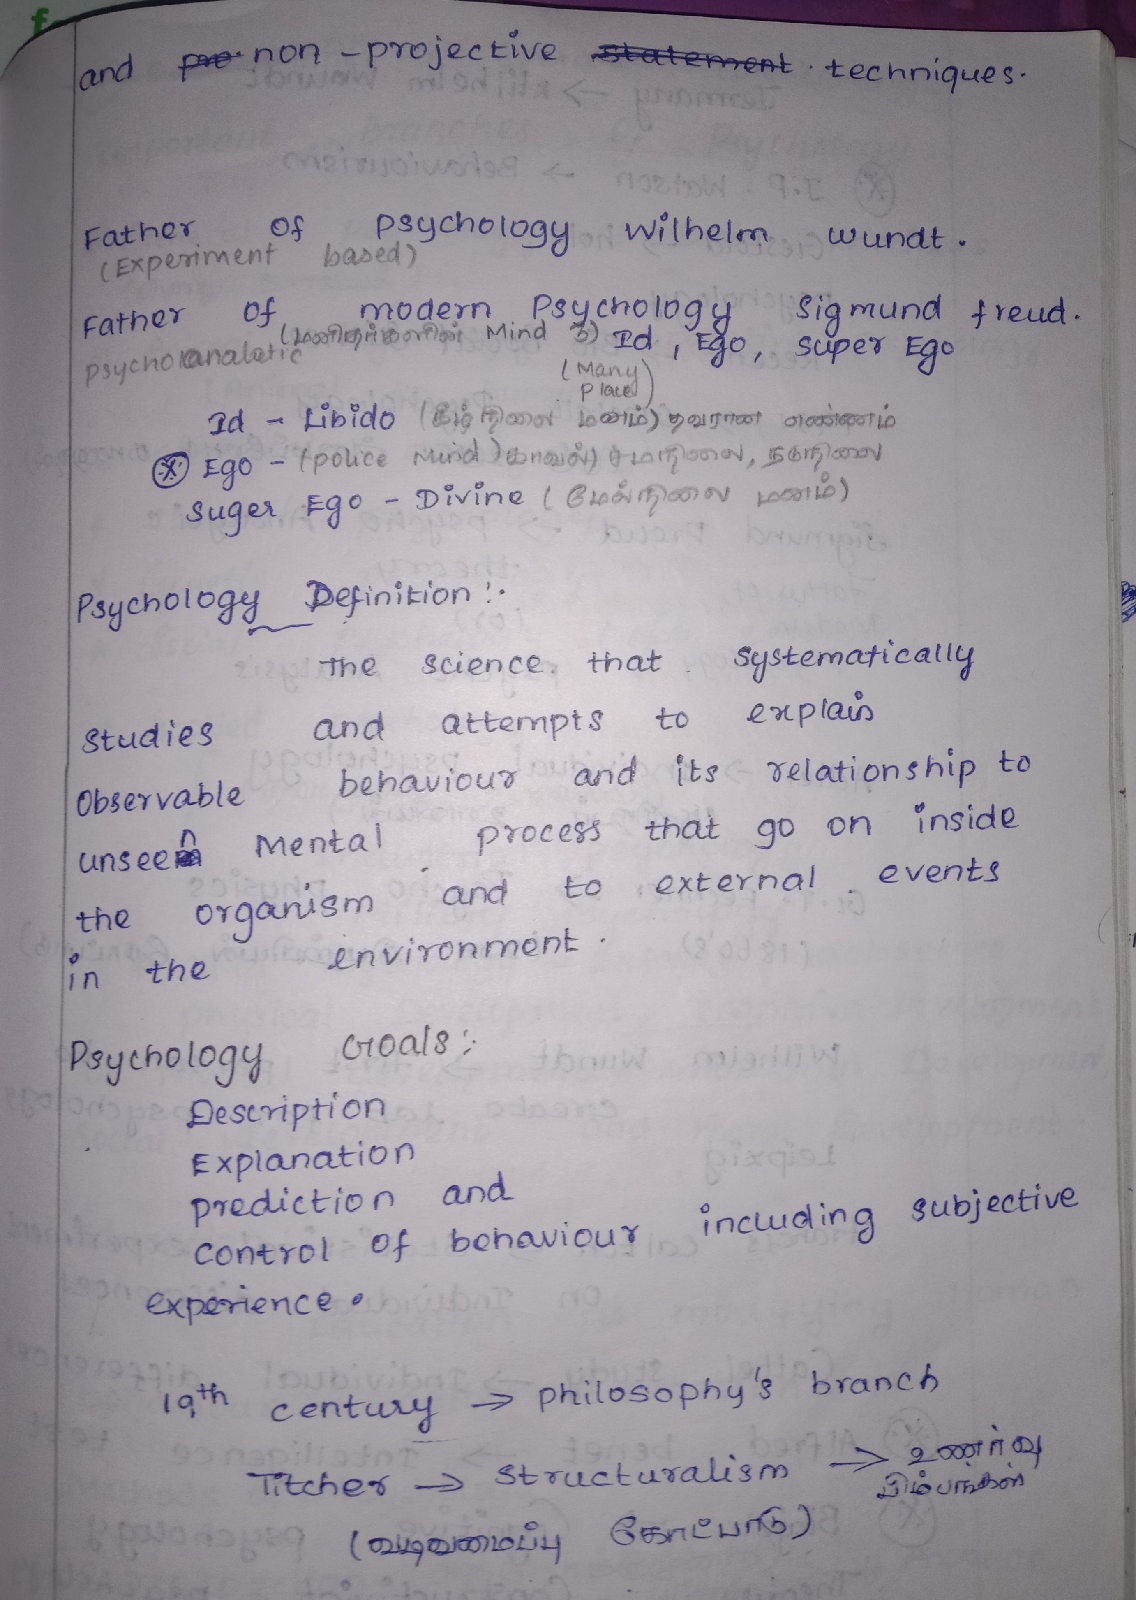 and non - projective statement . techniques.
Father of psychology Wilhelm wundt.
(Experiment based)
Father of modern Psychology Sigmund freud.
psychoanaletic (மனிதர்களின் Mind 3) Id, Ego, super Ego
(Many place)
Id - Libido (கீழ் நிலை மனம்) தவறான எண்ணம்
Ego - (police Mind) காவல்) சமநிலை, நடுநிலை
Suger Ego - Divine (மேல்நிலை மனம்)
Psychology Definition :-
The science that systematically
studies and attempts to explain
Observable behaviour and its relationship to
unseen Mental process that go on inside
the organism and to external events
in the environment.
Psychology Goals :-
Description
Explanation
prediction and
control of behaviour including subjective
experience.
19th century → philosophy's branch
Titcher → structuralism → உணர்வு
பிம்பங்கள்
(வடிவமைப்பு கோட்பாடு)